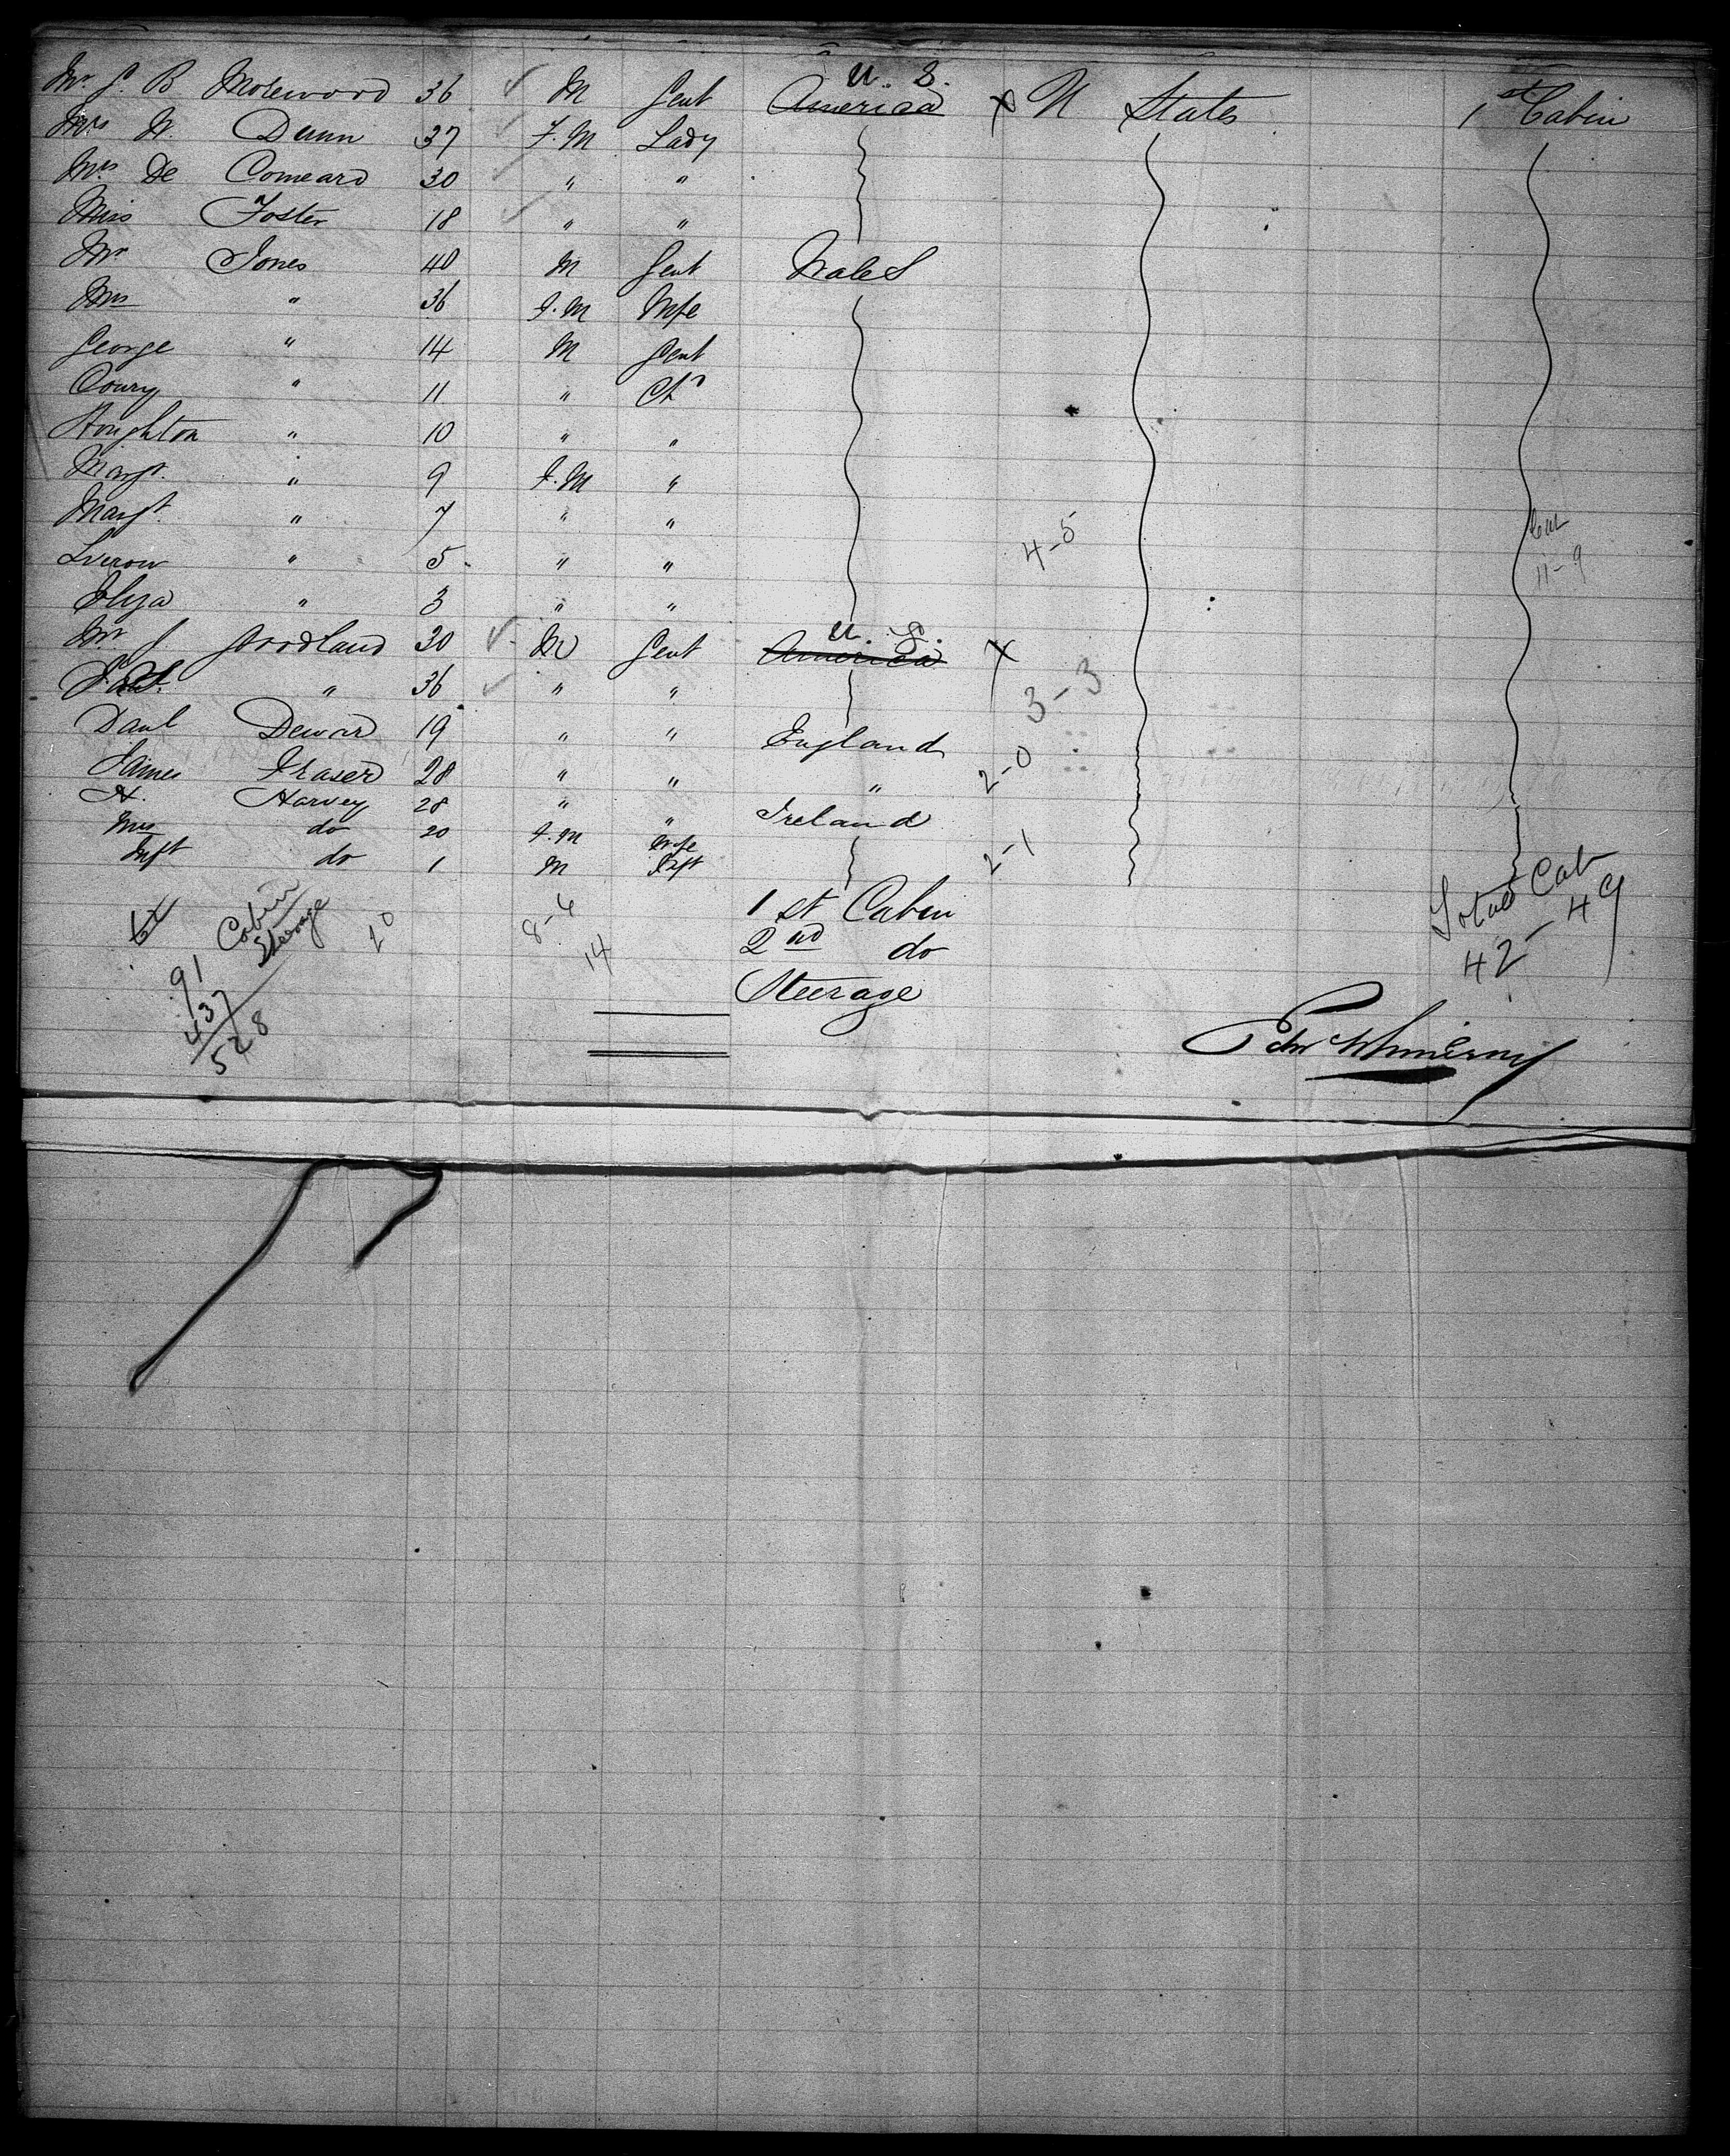 Mr. J. B Molewood 36 ✓ M Gent U. S. America X U States 1st Cabin
Mrs W. Dunn 37 ✓ F. M Lady
Mrs. De Comeard 30 ✓ " "
Miss Foster 18 ✓ " "
Mr Jones 40 M Gent Wales
Mrs " 36 F. M Wife
George " 14 M Gent
Coury " 11 " Ch
Houghton " 10 " "
Margt. " 9 F. M "
Margt. " 7 " " 4-5
" 5 " " 11-9
Eliza " 3 " "
Mr J Woodland 30 ✓ M Gent U. S. America X
" 36 ✓ " " 3-3
Danl Dewar 19 " " England
James Fraser 28 " " " 2-0
H. Harvey 28 " " Ireland
Mrs do 20 F. M Wife
Inft do 1 M Inft 2-1
Cabin Steerage 20 8-6 14 1st Cabin Total Cab
91 2nd do 42-49
437 Steerage
528